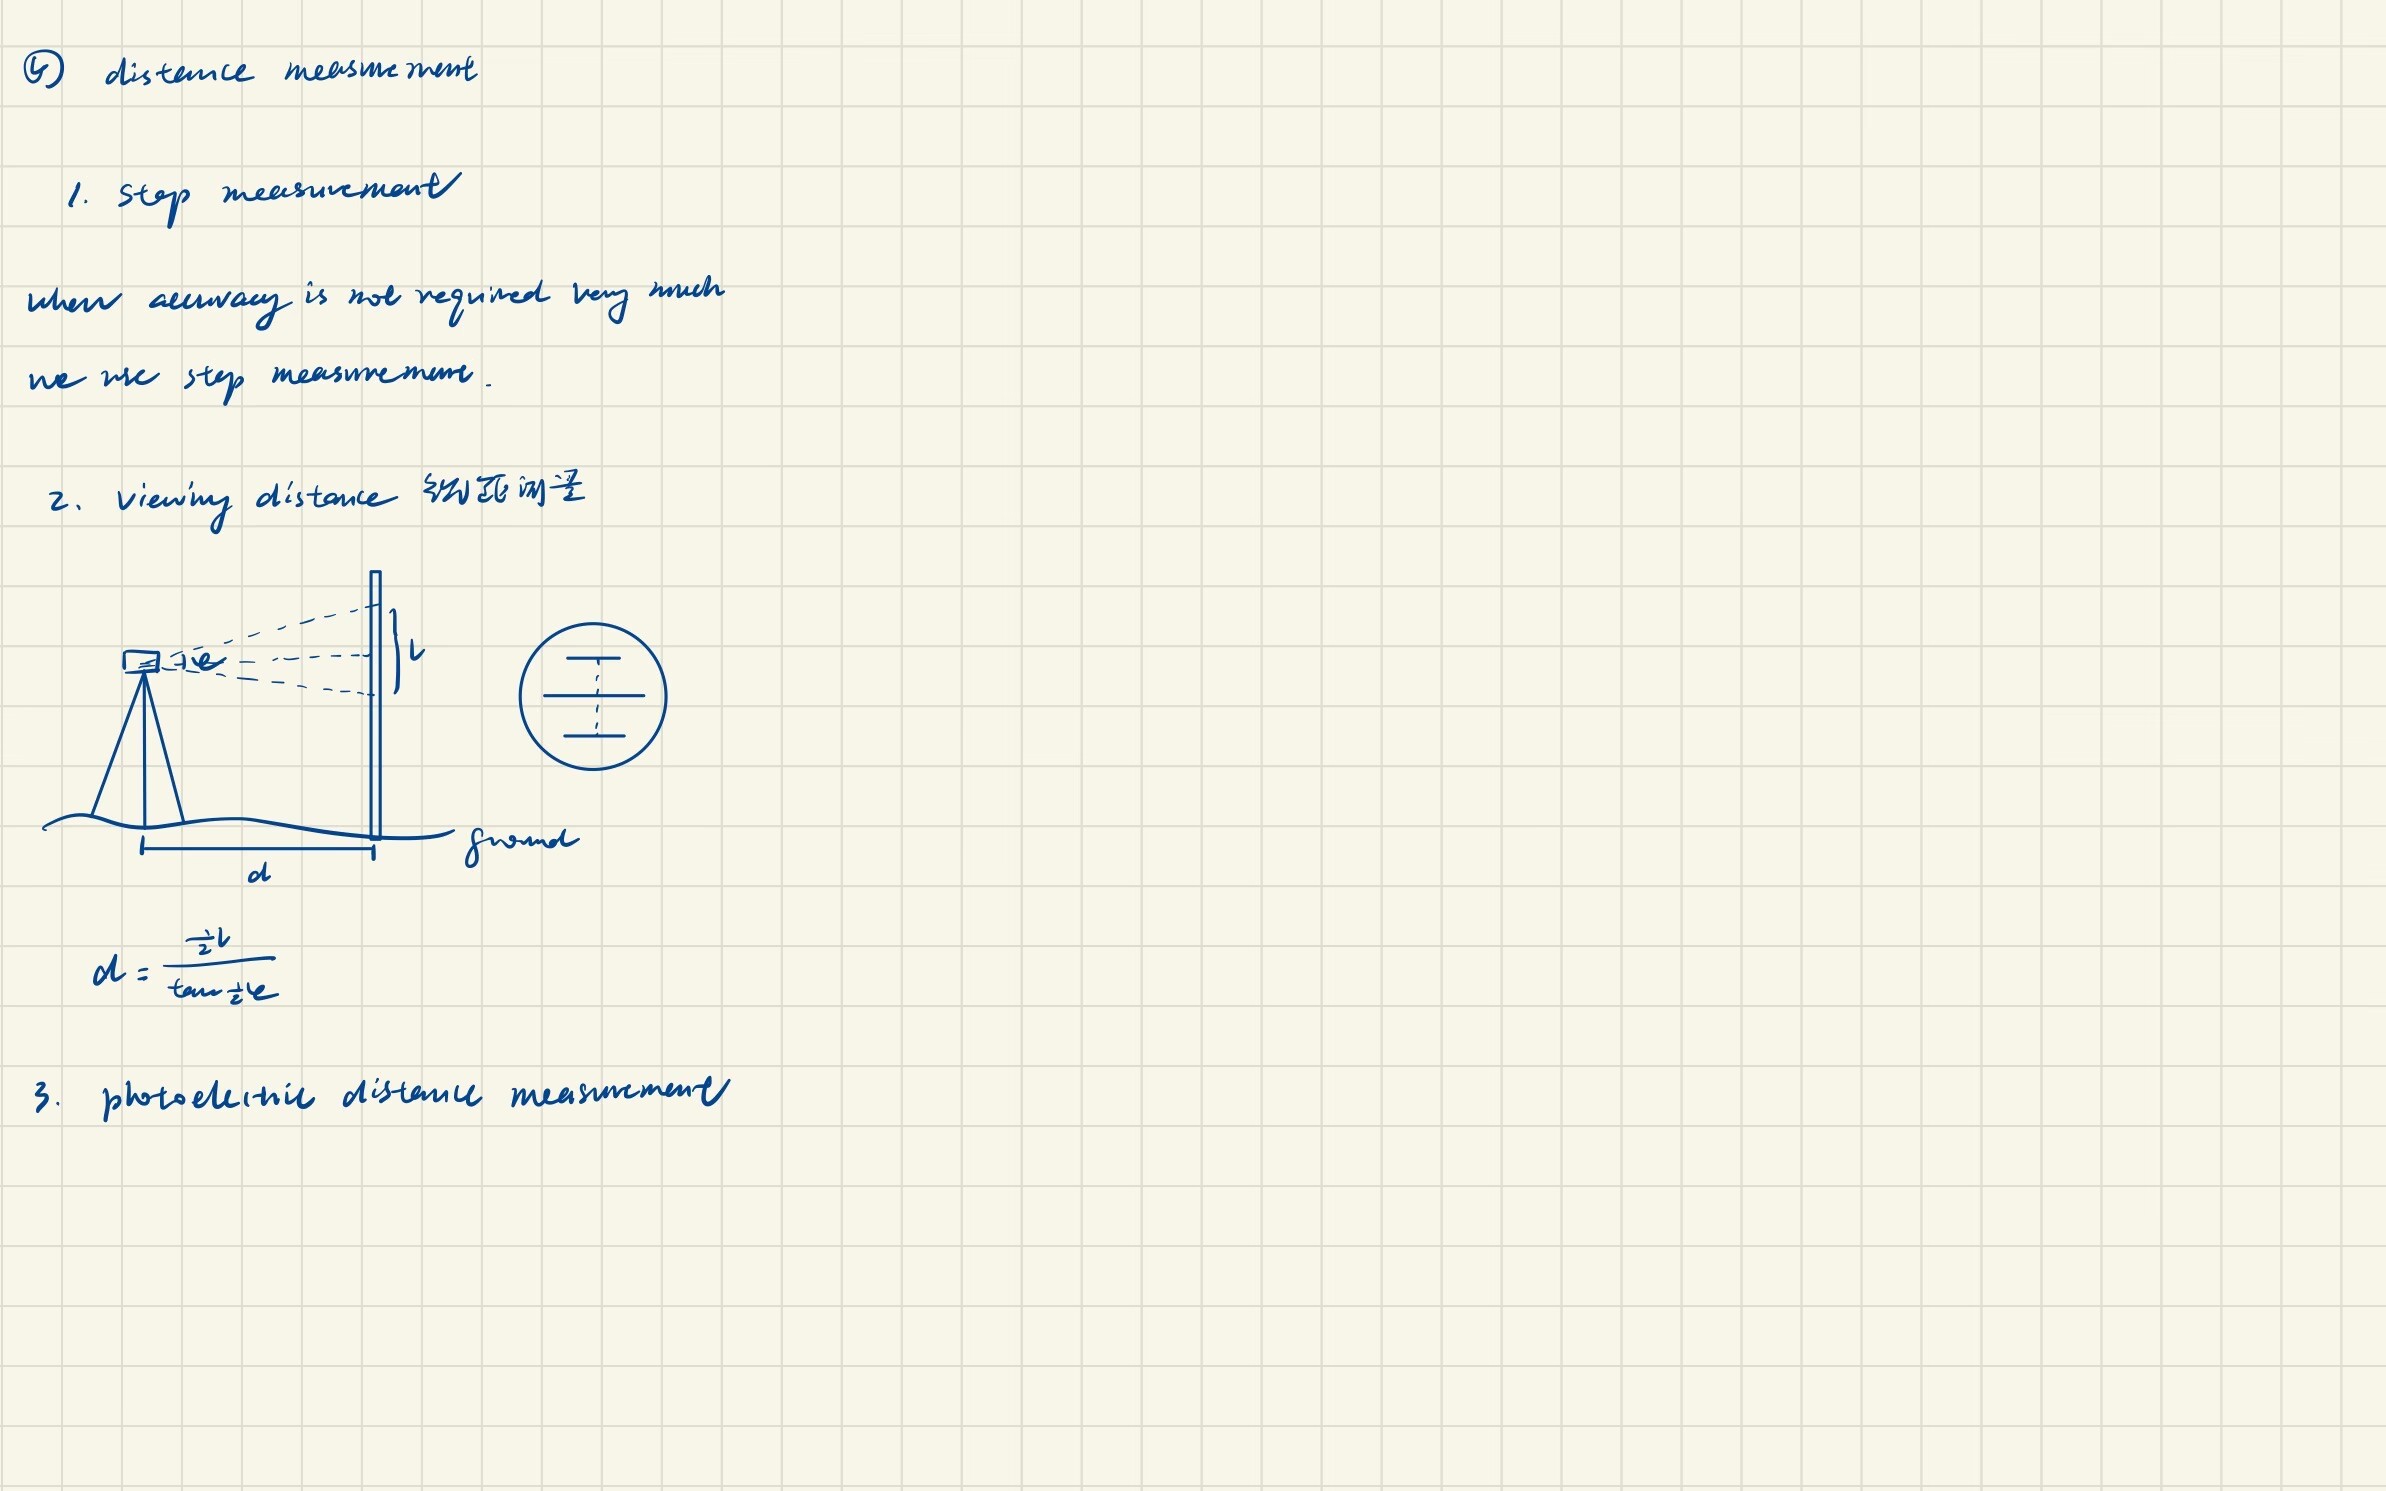 ④ distance measurement
1. step measurement
when accuracy is not required very much
we use step measurement.
2. viewing distance 距测量
l
φ
ground
d
d = ½l / tan ½φ
3. photoelectric distance measurement